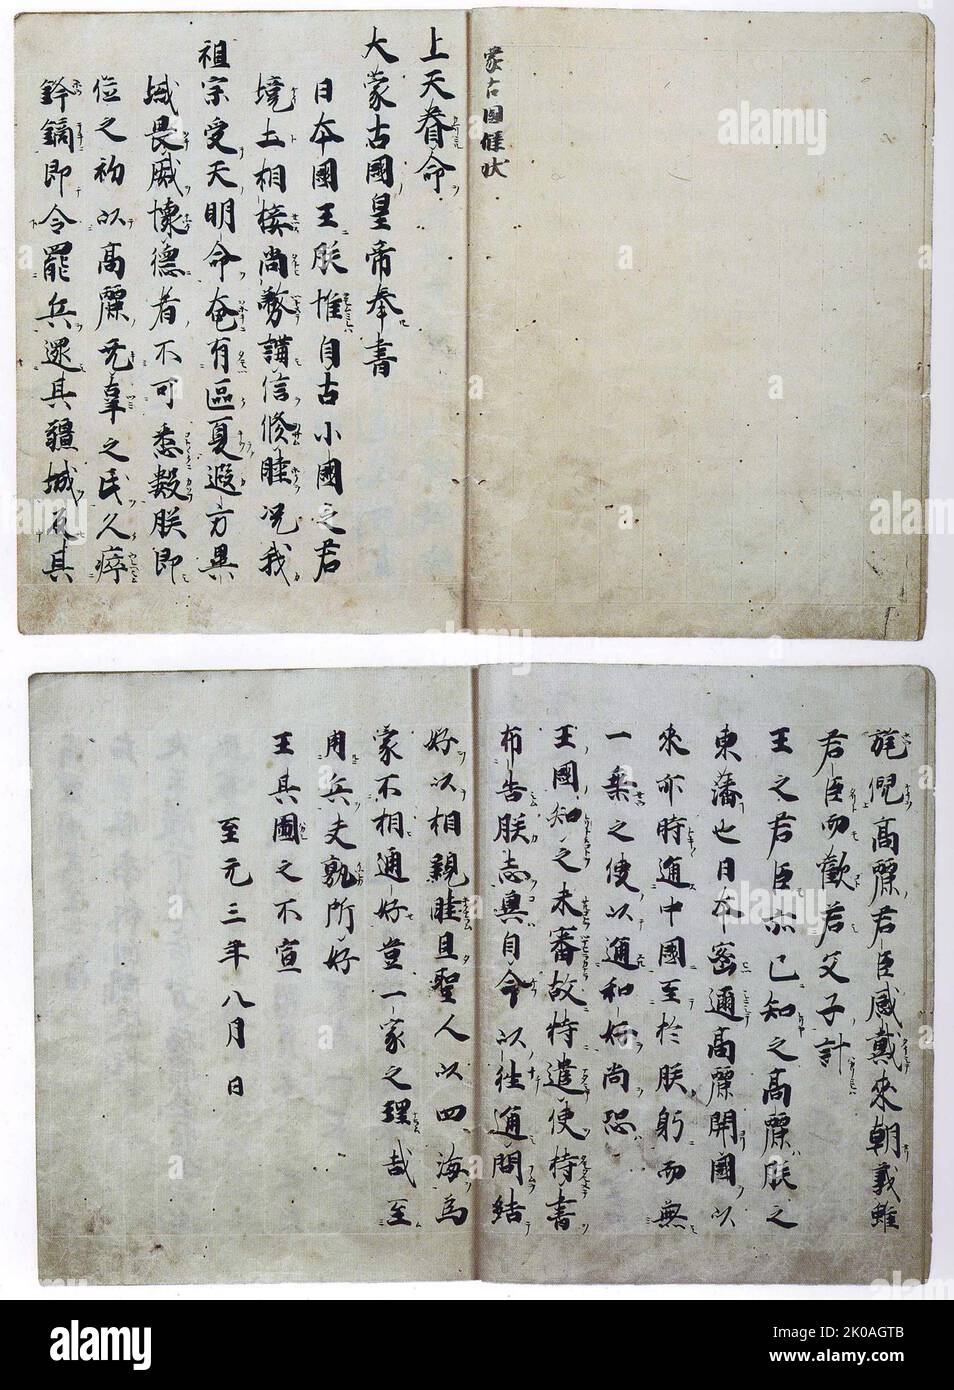 蒙古國牒状
上天眷命
大蒙古國皇帝奉書
日本國王朕惟自古小國之君
境土相接尚務講信修睦况我
祖宗受天明命奄有區夏遐方異
域畏威懷德者不可悉數朕即
位之初以高麗无辜之民久瘁
鋒鏑即令罷兵還其疆城反其
旄倪高麗君臣感戴來朝義雖
君臣而歡若父子計
王之君臣亦已知之高麗朕之
東藩也日本密邇高麗開國以
來亦時通中國至於朕躬而無
一乗之使以通和好尚恐
王國知之未審故特遣使持書
布告朕志冀自今以往通問結
好以相親睦且聖人以四海為
家不相通好豈一家之理哉至
用兵夫孰所好
王其圖之不宣
至元三年八月 日
alamy
Image ID: 2K0AGTB
www.alamy.com